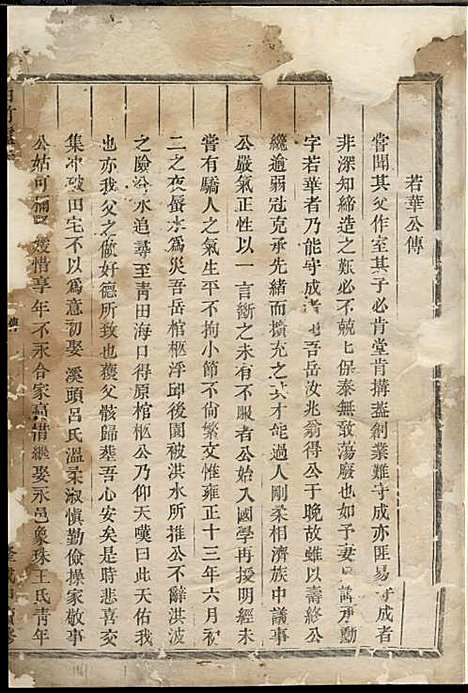 若華公傳
嘗聞其父作室其子必肯堂肯搆蓋創業難守成亦匪易守成者
非深知締造之艱必不兢兢保泰無敢蕩廢也如予妻 諱承勳
字若華者乃能守成者也吾岳汝兆翁得公于晚故雖以壽終公
纔逾弱冠克承先緒而擴充之其才能過人剛柔相濟族中議事
公嚴氣正性以一言斷之未有不服者公始入國學再授明經未
嘗有驕人之氣生平不拘小節不尚繁文惟雍正十三年六月初
二之夜蜃水為災吾岳棺柩浮邱後園被洪水所推公於洪波
之險沿水追尋至青田海口得原棺柩公乃仰天嘆曰此天佑我
也亦我父之做好德所致也獲父骸歸葬吾心安矣是時悲喜交
集冲破田宅不以為意初娶溪頭呂氏溫柔淑慎勤儉操家敬事
公姑可 情享年不永合家 惜繼娶永邑象珠王氏青年